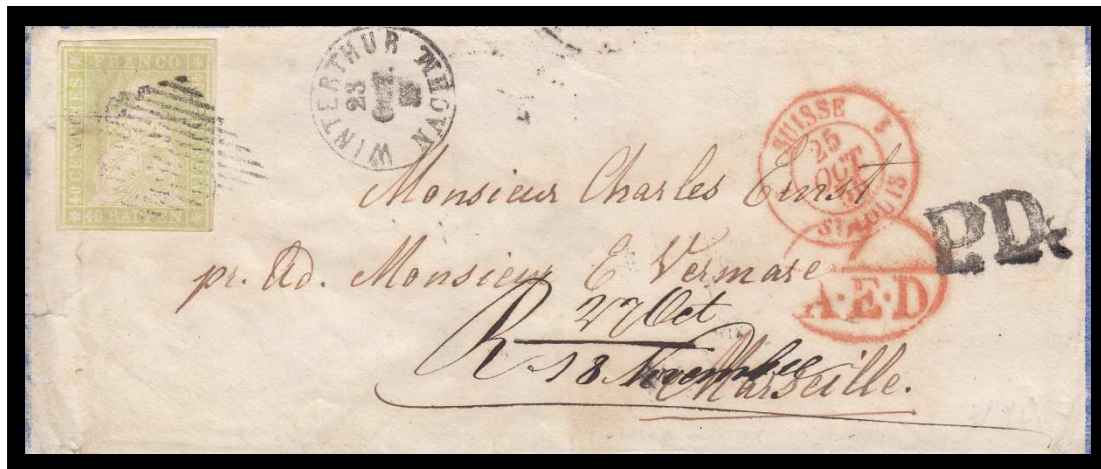 FRANCO
40 CENTIMES
40 RAPPEN
WINTERTHUR NACHM
23 OCT.
SUISSE 1
25
OCT
ST LOUIS
P.D.
Monsieur Charles Ernst
pr. Ad. Monsieur E Vermare
A·E·D
27 Oct
R 18 November
Marseille.